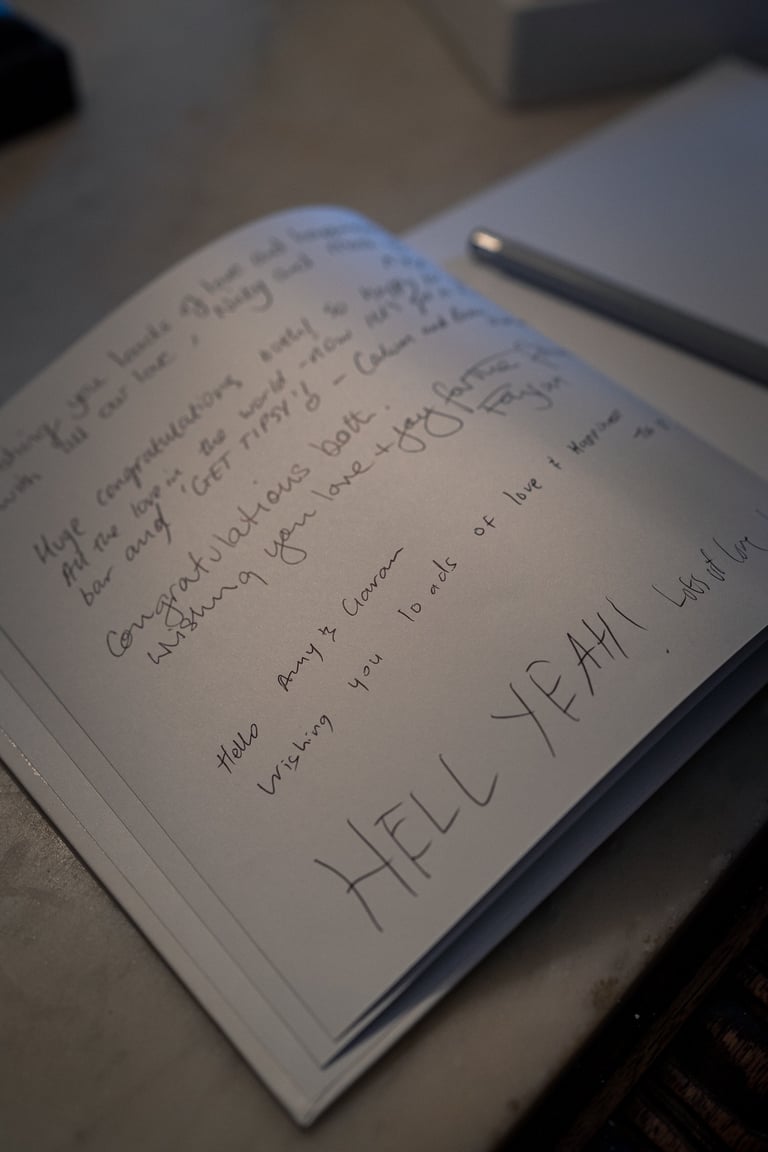 you loads of love and
with all our love, Nicky and
Huge congratulations
All the love in the world - now let's
bar and 'GET TIPSY'! - Callum and
Congratulations both.
Wishing you love + joy for the
Hello Amy & Ciaran
Wishing you loads of love & Happiness
HELL YEAH! Lots of love